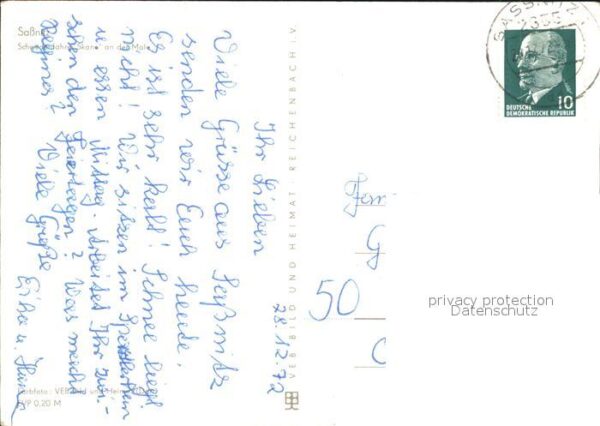 Saßnitz
Schwedenfähre "Skane" an der Mole
28.12.72
Ihr Lieben
Viele Grüsse aus Saßnitz
senden wir Euch heute.
Es ist sehr kalt! Schnee liegt
nicht! Wir sitzen im
u. essen Mittag. Arbeitet Ihr zwi-
schen den Feiertagen? Was macht
Regina? Viele Grüße
Erika u.
VEB BILD UND HEIMAT REICHENBACH I.V
Farbfoto: VEB Bild und Heimat
EVP 0,20 M
SASSNITZ 1
2355
10
DEUTSCHE
DEMOKRATISCHE REPUBLIK
Fam
G
50
privacy protection
Datenschutz